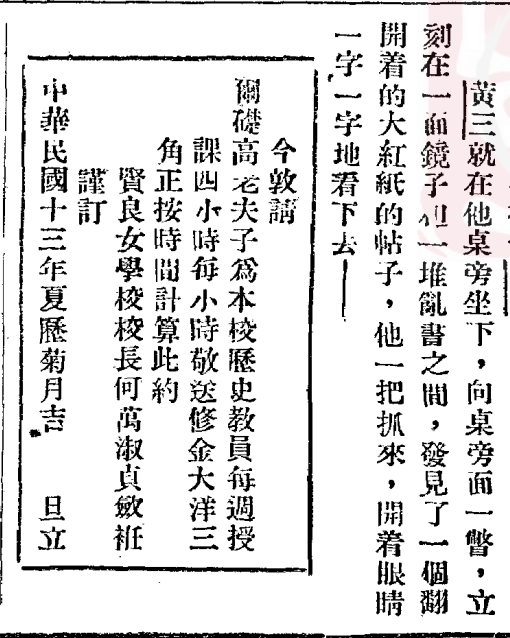 黃三就在他桌旁坐下，向桌旁面一瞥，立
刻在一面鏡子和一堆亂書之間，發見了一個翻
開着的大紅紙的帖子，他一把抓來，開着眼睛
一字一字地看下去——
今敦請
爾礎高老夫子爲本校歷史敎員每週授
課四小時每小時敬送修金大洋三
角正按時間計算此約
賢良女學校校長何萬淑貞斂衽
謹訂
中華民國十三年夏歷菊月吉　旦立